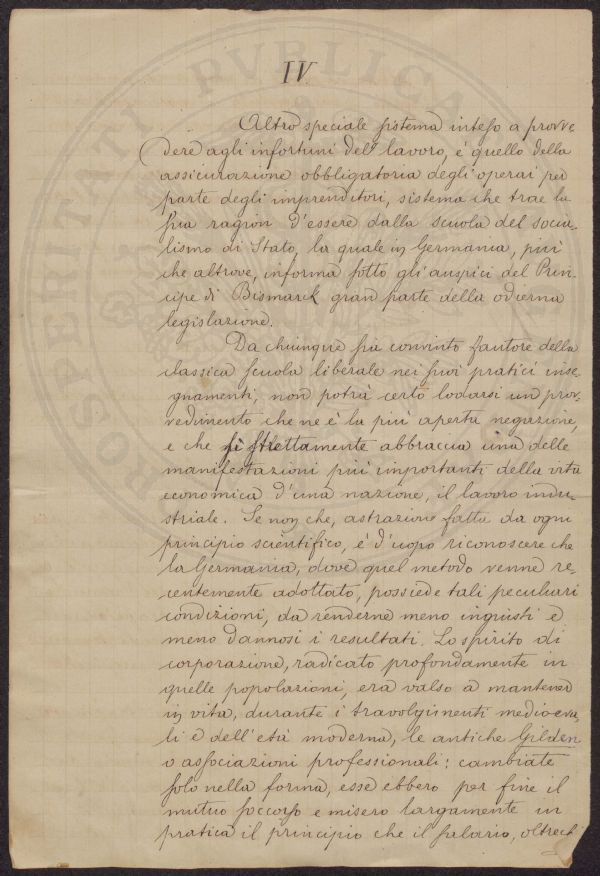 IV
Altro speciale sistema inteso a provve
dere agli infortuni del lavoro, è quello della
assicurazione obbligatoria degli operai per
parte degli imprenditori, sistema che trae la
sua ragion d'essere dalla scuola del socia-
lismo di Stato, la quale in Germania, più
che altrove, informa sotto gli auspici del Prin-
cipe di Bismarck gran parte della odierna
legislazione.
Da chiunque sia convinto fautore della
classica scuola liberale nei suoi pratici inse-
gnamenti, non potrà certo lodarsi un prov-
vedimento che ne è la più aperta negazione,
e che sì strettamente abbraccia una delle
manifestazioni più importanti della vita
economica d'una nazione, il lavoro indu-
striale. Se non che, astrazione fatta da ogni
principio scientifico, è d'uopo riconoscere che
la Germania, dove quel metodo venne re-
centemente adottato, possiede tali peculiari
condizioni, da renderne meno ingiusti e
meno dannosi i resultati. Lo spirito di
corporazione, radicato profondamente in
quelle popolazioni, era valso a mantener
in vita, durante i travolgimenti medioeva-
li e dell'età moderna, le antiche Gilden
o associazioni professionali: cambiate
solo nella forma, esse ebbero per fine il
mutuo soccorso e misero largamente in
pratica il principio che il salario, oltrech
POSTERITATI PVBLICA